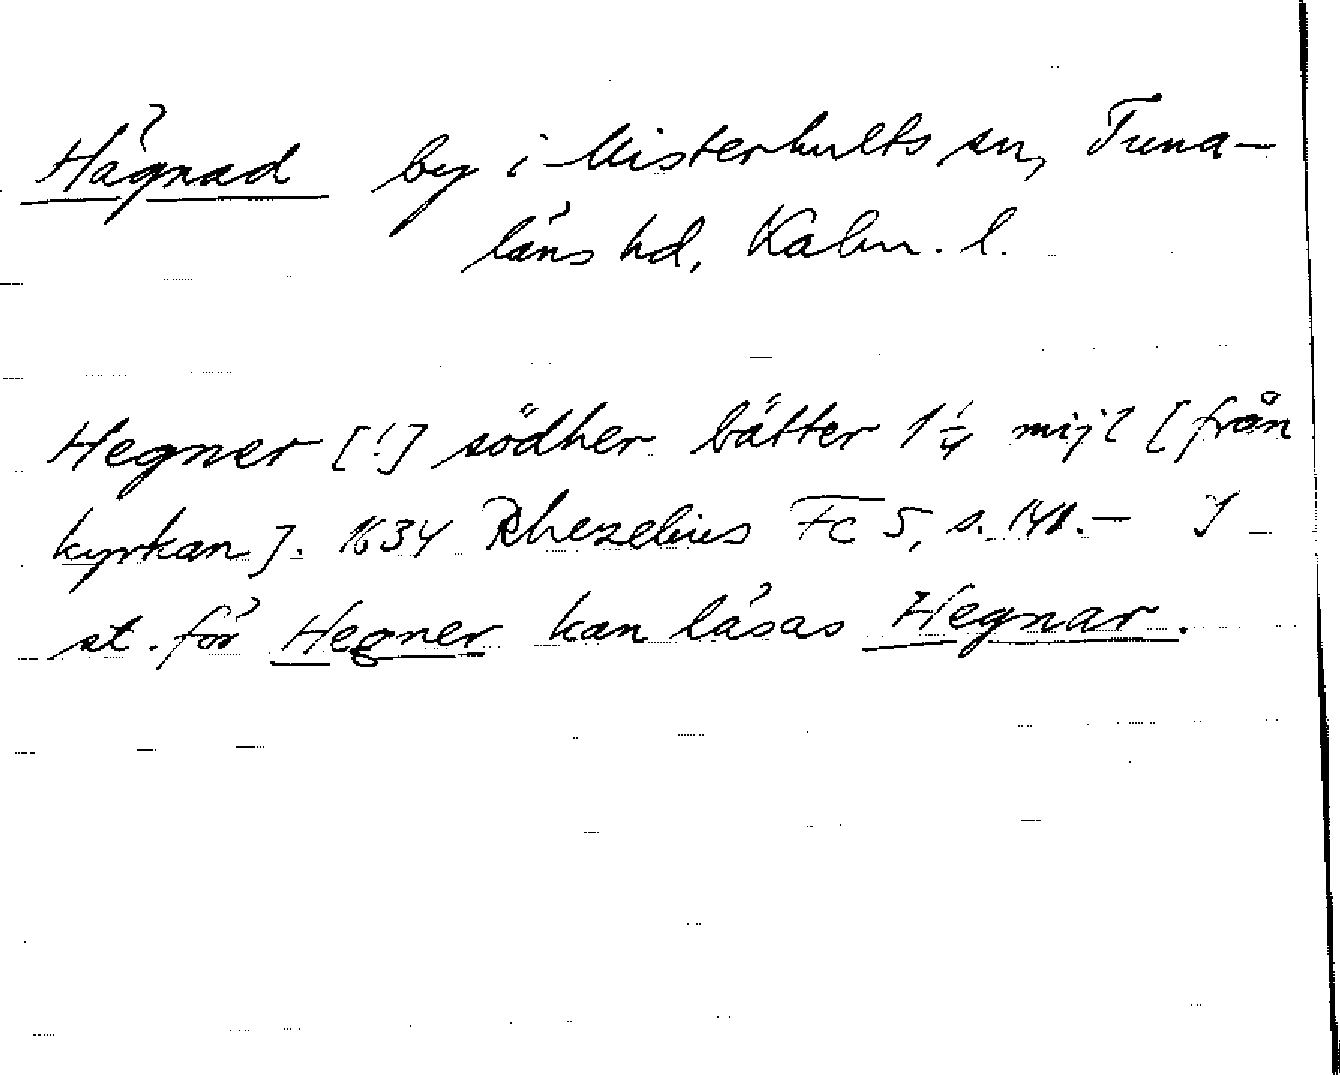 Hägnad by i Misterhults sn, Tuna-
läns hd, Kalm. l.
Hegner [!] södher bätter 1¼ mijl [från
kyrkan]. 1634 Rhezelius Fc 5, s. 141. – I
st. för Hegner kan läsas Hegnar.